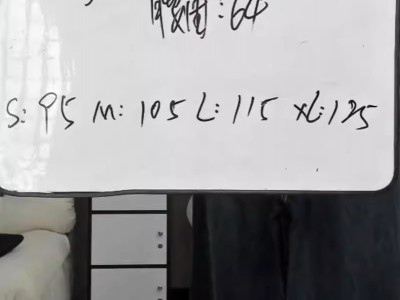 腰围:64
S:95 M:105 L:115 XL:125